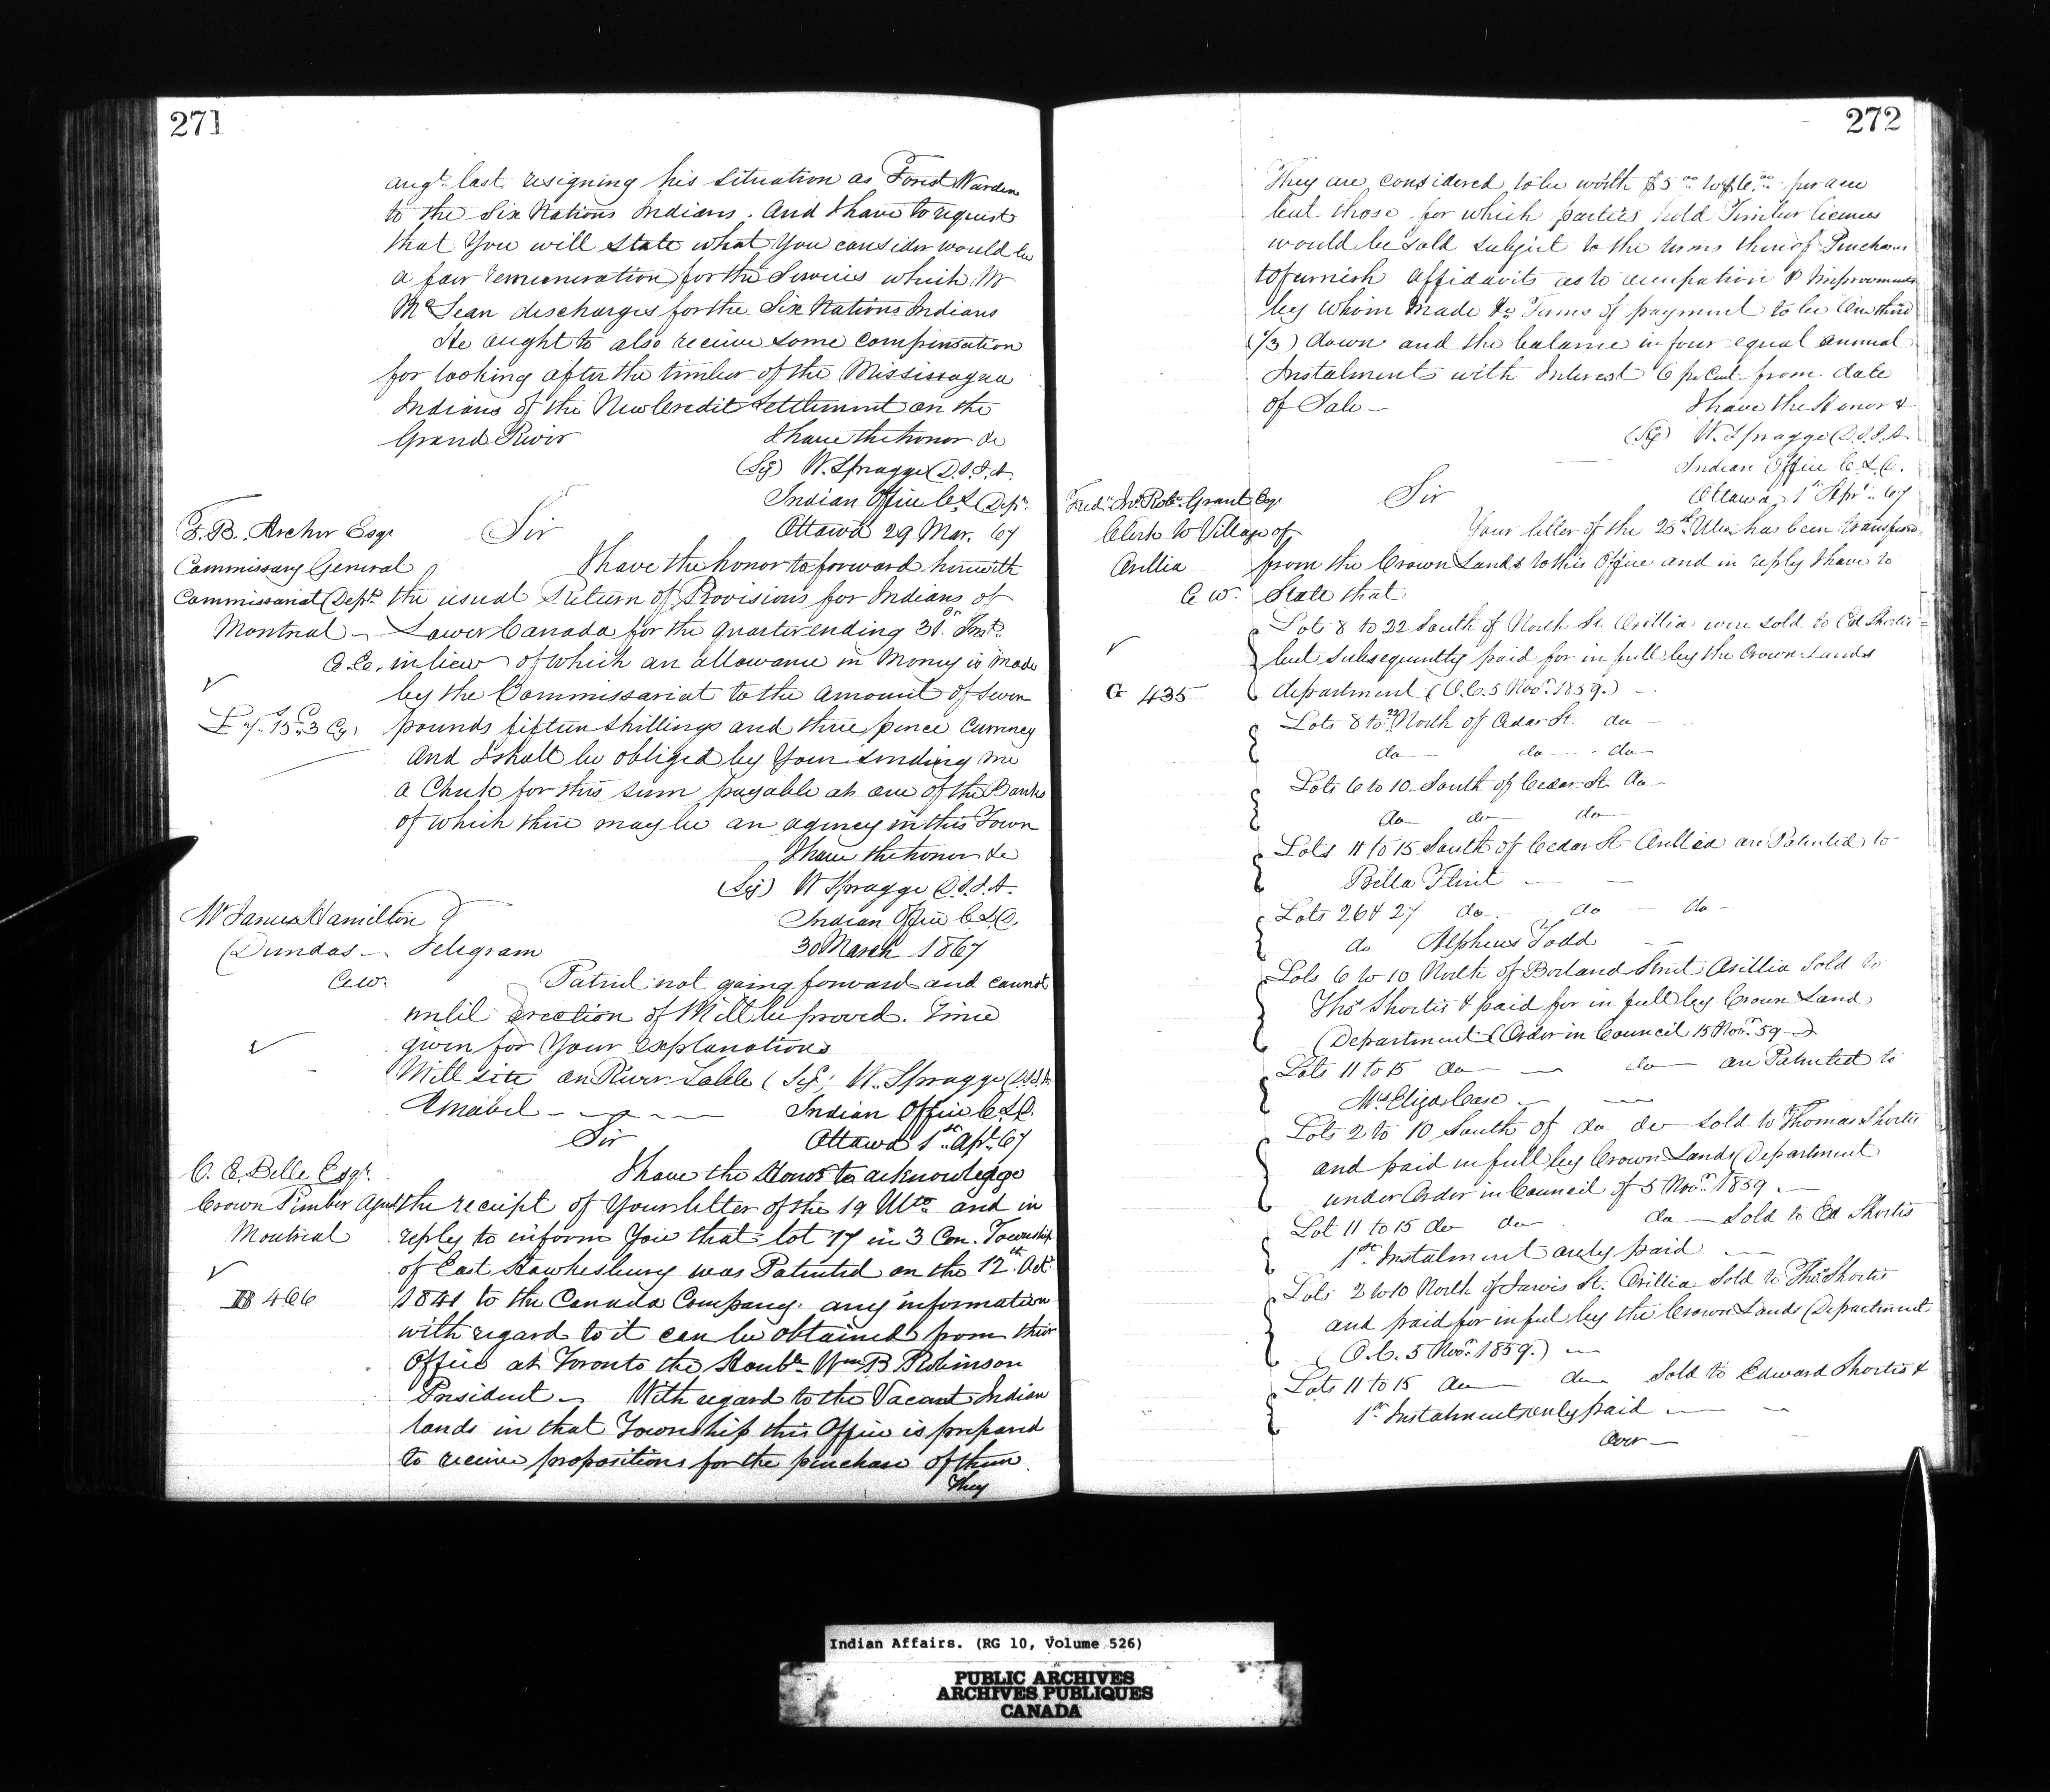 271
augt. last resigning his situation as Forest Warden
to the Six Nations Indians. And I have to request
that You will state what You consider would be
a fair remuneration for the Services which Mr
McLean discharges for the Six Nations Indians
He ought to also receive some compensation
for looking after the timber of the Mississagua
Indians of the New Credit Settlement on the
Grand River I have the honor &c
(Sg) W. Spragge D.S.I.A.
Indian Office C.L. Dept.
F. B. Archer Esqr Sir Ottawa 29 Mar. 67
Commissary General I have the honor to forward herewith
Commissariat Dept. the usual Return of Provisions for Indians of
Montreal - Lower Canada for the quarter ending 31st. Inst.
C.E. in lieu of which an allowance in Money is made
by the Commissariat to the amount of Seven
£7.. 15s.. 3 Cy. pounds fifteen shillings and three pence Currency
And I shall be obliged by Your sending me
a Check for this sum payable at one of the Banks
of which there may be an agency in this Town
I have the honor &c
(Sg) W Spragge D.S.I.A.
Mr James Hamilton Indian Office C.L.D.
Dundas - Telegram 30 March 1867
C.W. Patent not going forward and cannot
until erection of Mill be proved. Time
given for Your explanations
Mill site on River Sable (Sg) W. Spragge D.S.I.A.
Amabel - Indian Office C.L.D.
Sir Ottawa 1st Apl. 67
C. E. Belle Esqr. I have the Honor to acknowledge
Crown Timber Agent the receipt of Your letter of the 19 Ulto and in
Montreal reply to inform You that lot 17 in 3 Con. Township
of East Hawkesbury was Patented on the 12th. Oct.
B 466 1841 to the Canada Company. any information
with regard to it can be obtained from their
Office at Toronto the Honble Wm B Robinson
President - With regard to the Vacant Indian
lands in that Township this Office is prepared
to receive propositions for the purchase of them
They
272
They are considered to be worth $5.00 to $6.00 per acre
but those for which parties hold Timber licenses
would be sold subject to the terms thereof Purchasers
to furnish affidavits as to occupation & Improvements
by whom made &c Terms of payment to be One third
(1/3) down and the balance in four equal annual
Instalments with Interest 6 pr Cent from date
of Sale - I have the Honor &
(Sg) W. Spragge D.S.I.A.
Indian Office C.L.D.
Fred. Jno. Robt. Grant Esqr Sir Ottawa, 1st Apr. 67
Clerk to Village of Your letter of the 25th Ulto has been transferred
Orillia from the Crown Lands to this Office and in reply I have to
C W. State that
Lots 8 to 22 South of North St. Orillia were sold to Ed Shortis
but subsequently paid for in full by the Crown Lands
G 435 department (O.C. 5 Novr. 1859.) -
Lots 8 to 22 North of Cedar St. do -
do - do - do -
Lots 6 to 10 South of Cedar St. do -
do do do
Lots 11 to 15 South of Cedar St Orillia are Patented to
Billa Flint -
Lots 26 & 27 do - do - do -
do Alpheus Todd -
Lots 6 to 10 North of Borland Street Orillia Sold to
Thos Shortis & paid for in full by Crown Land
Department (Order in Council 15 Novr. 59 -)
Lots 11 to 15 do - do - are Patented to
Mrs Eliza Case -
Lots 2 to 10 South of do do - sold to Thomas Shortis
and paid in full by Crown Lands Department
under Order in Council of 5 Novr. 1859. -
Lot 11 to 15 do do do - Sold to Ed Shortis
1st. Instalment only paid -
Lots 2 to 10 North of Jarvis St. Orillia Sold to Thos Shortis
and paid for in full by the Crown Lands Department
(O.C. 5 Novr. 1859.) -
Lots 11 to 15 do - do - Sold to Edward Shortis &
1st Instalment only paid -
Over -
Indian Affairs. (RG 10, Volume 526)
PUBLIC ARCHIVES
ARCHIVES PUBLIQUES
CANADA